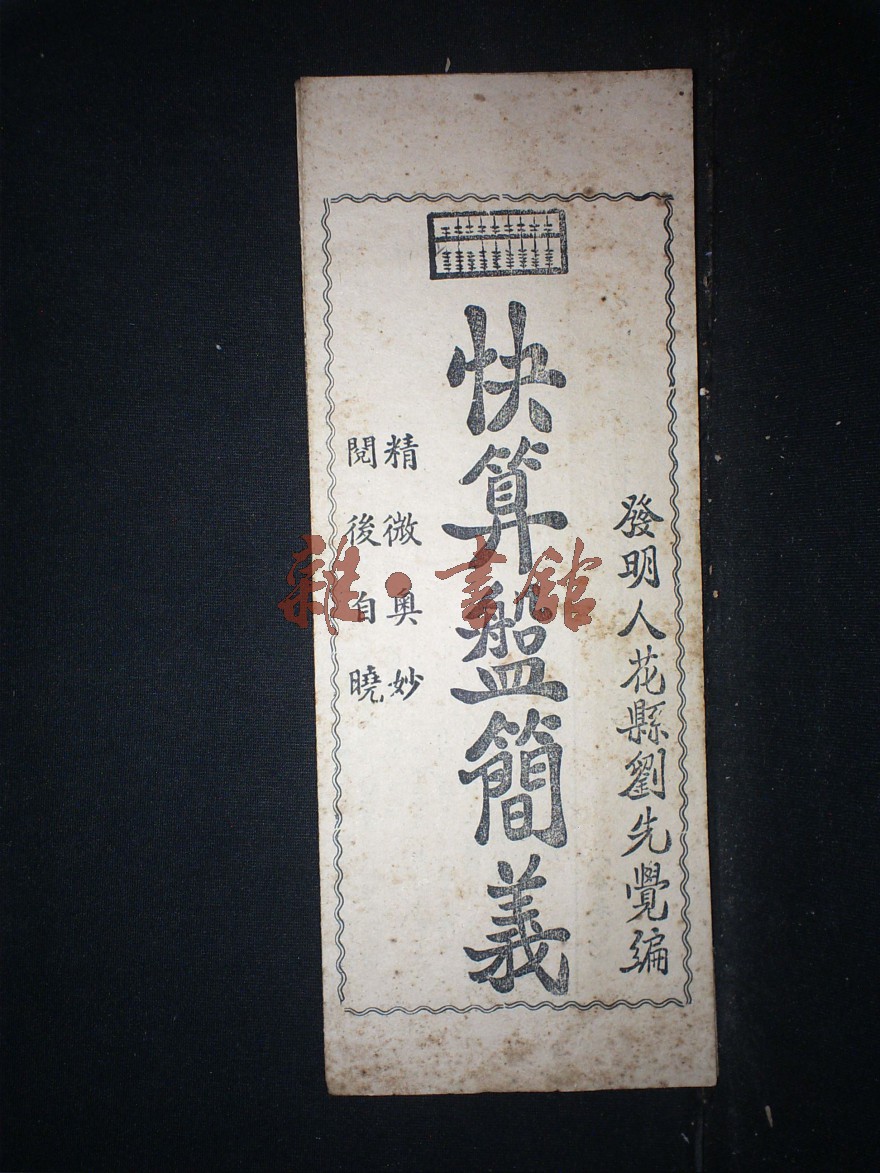 發明人花縣劉先覺編
快算盤簡義
精微奧妙
閱後自曉
雜·書館